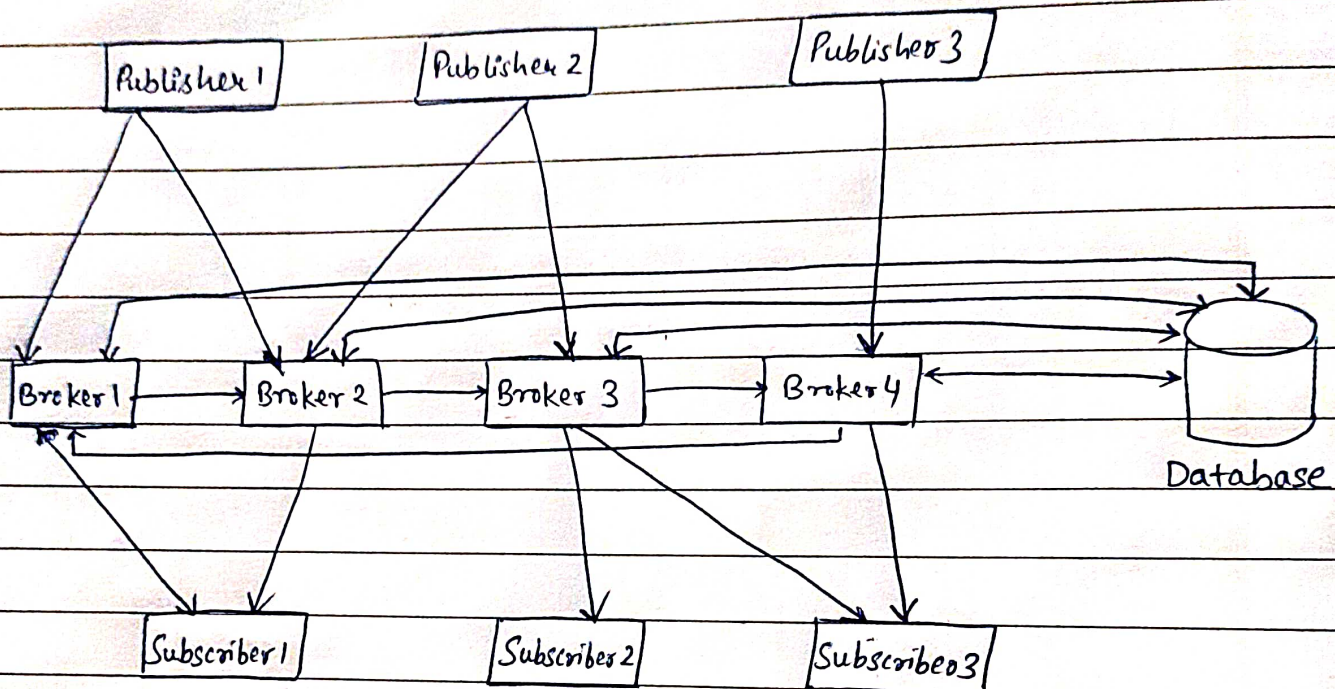 Publisher 1
Publisher 2
Publisher 3
Broker 1
Broker 2
Broker 3
Broker 4
Database
Subscriber 1
Subscriber 2
Subscriber 3